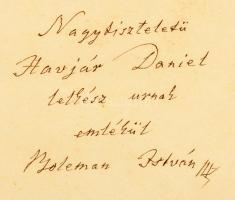 Nagytiszteletü
Havjár Daniel
lelkész urnak
emlékül
Boleman István